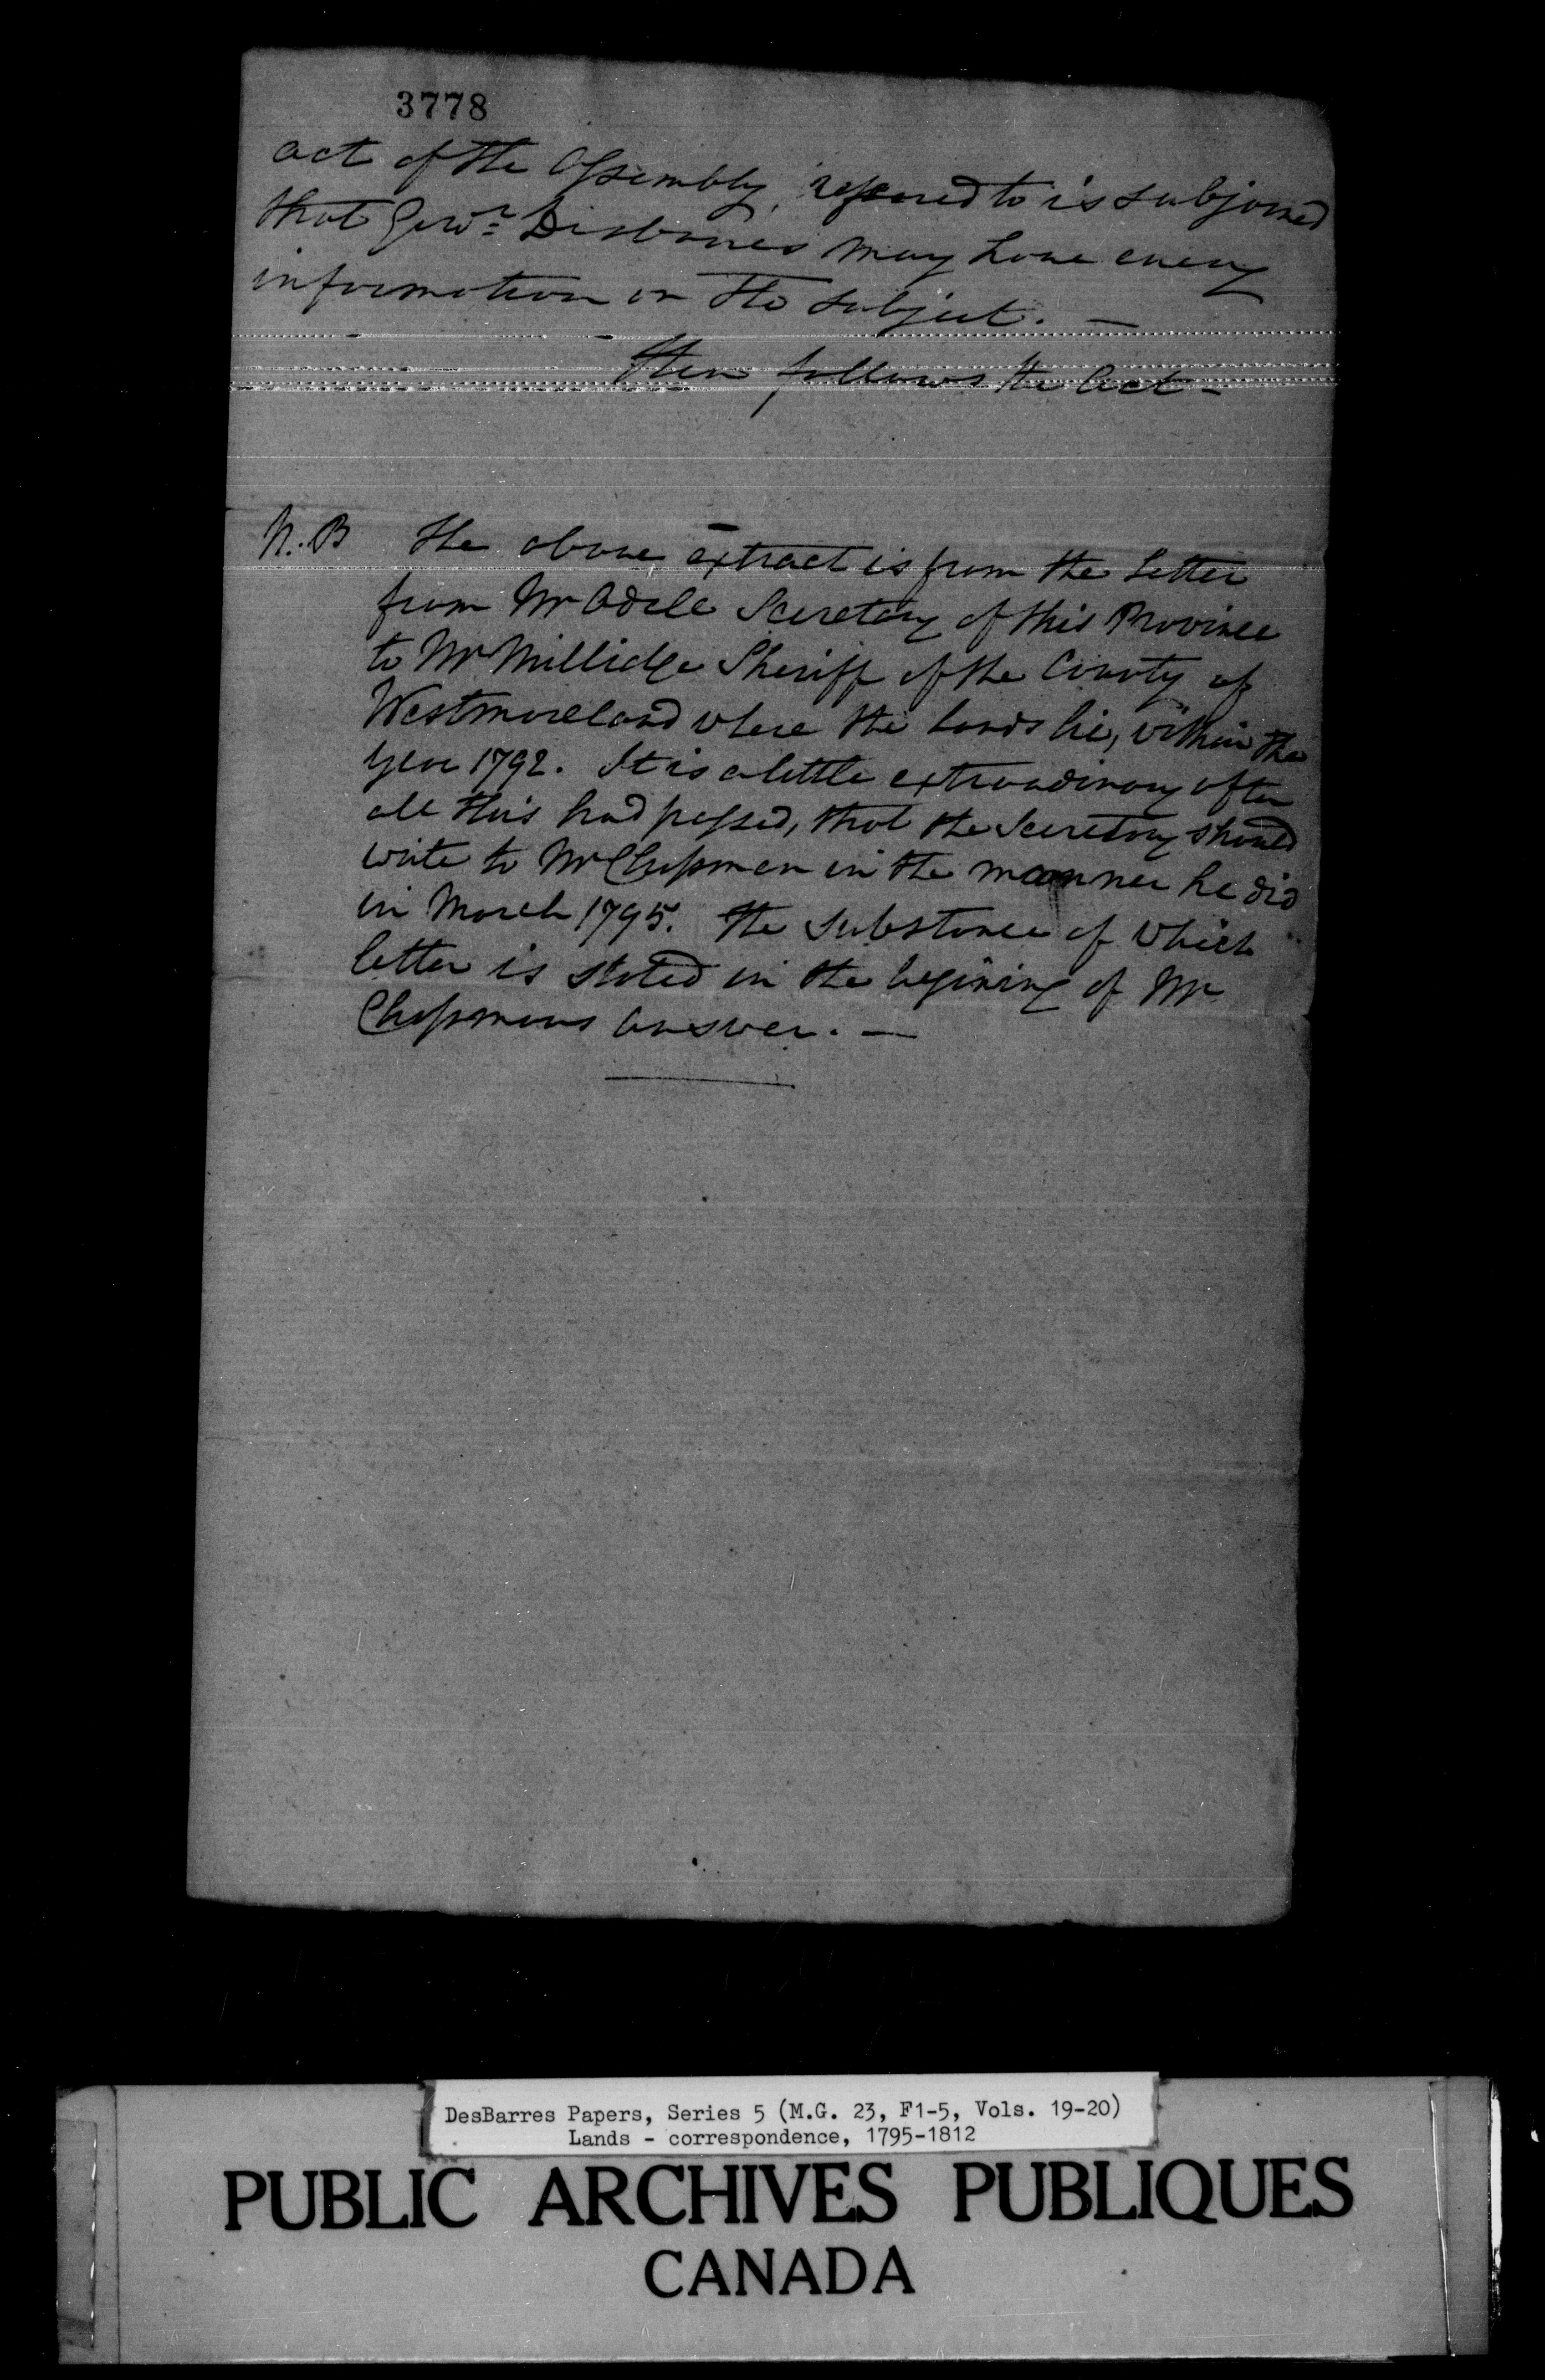 3778
act of the Assembly, refered to is subjoined
that Govr. Disbarres may have every
information on the subject. —
then follows the Act —
N.B the above extract is from the Letter
from Mr Odell Secretary of this Province
to Mr Millidge Sheriff of the County of
Westmoreland where the Lands lie, within the
year 1792. It is a little extraordinary after
all this had passed, that the Secretary should
write to Mr Chapman in the manner he did
in March 1795. the substance of which
letter is stated in the begining of Mr
Chapmans answer. —
DesBarres Papers, Series 5 (M.G. 23, F1-5, Vols. 19-20)
Lands - correspondence, 1795-1812
PUBLIC ARCHIVES PUBLIQUES
CANADA